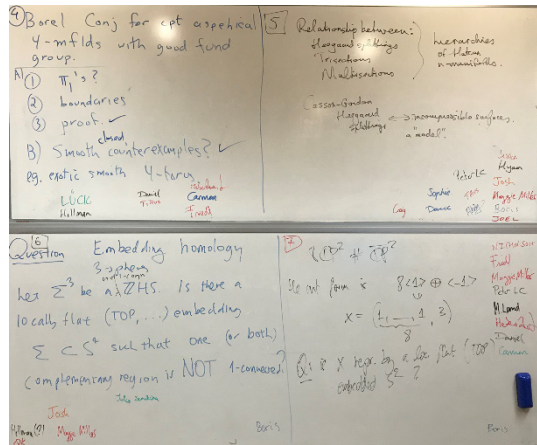 4 Borel Conj for cpt aspherical
4-mflds with good fund
group.
A) 1 π₁'s?
2 boundaries
3 proof. ✓
closed
B) Smooth counterexamples? ✓
eg. exotic smooth 4-torus
LÜCK
Hillman
Daniel
Carman
Fredl
5 Relationship between:
Heegaard splittings
Trisections
Multisections
hierarchies
of Haken
n-manifolds.
Casson-Gordon
Heegaard
splittings ↔ incompressible surfaces.
a "model".
Peter LC
Sophie
Hyman
Josh
Maggie Miller
Boris
JOEL
6
Question Embedding homology
3-spheres
Let Σ³ be a ZHS. Is there a
locally flat (TOP, ...) embedding
Σ ⊂ S⁴ such that one (or both)
complementary region is NOT 1-connected?
Josh
Maggie Miller
Boris
The int form is 8<1> ⊕ <-1>
x = (1, ..., 1, 3)
8
Q: is x repr. by a loc flat (TOP)
embedded S² ?
Fredl
Maggie Miller
Peter LC
M. Land
Daniel
Carman
Boris